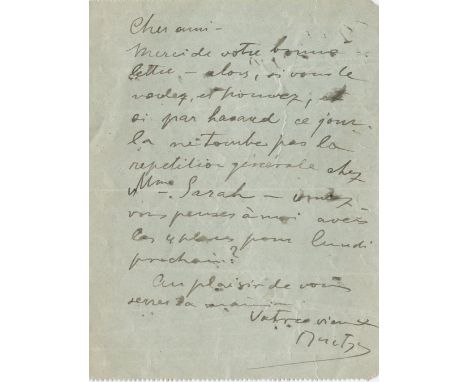 Cher ami -
Merci de votre bonne
lettre, - alors, si vous le
voulez, et pouvez, et
si par hasard ce jour-
la ne tombe pas la
repetition générale chez
Mme Sarah -
vous pensez à moi avec
les 4 places pour lundi
prochain?
Au plaisir de vous
serrer la main
Votre vieux